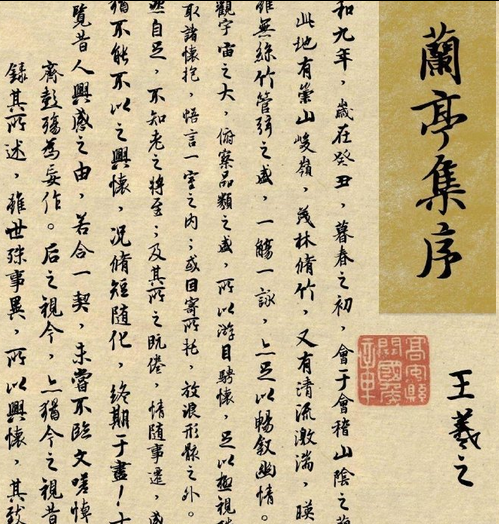 蘭亭集序
王羲之
和九年，歲在癸丑，暮春之初，會于會稽山陰之
此地有崇山峻嶺，茂林脩竹，又有清流激湍，暎
雖無絲竹管弦之盛，一觴一詠，亦足以暢敘幽情。
觀宇宙之大，俯察品類之盛，所以游目騁懷，足以極視
取諸懷抱，悟言一室之內；或因寄所托，放浪形骸之外。
然自足，不知老之將至；及其所之既倦，情隨事遷，感
猶不能不以之興懷，況脩短隨化，終期于盡！
覽昔人興感之由，若合一契，未嘗不臨文嗟悼
齊彭殤為妄作。后之視今，亦猶今之視昔
錄其所述，雖世殊事異，所以興懷，其致